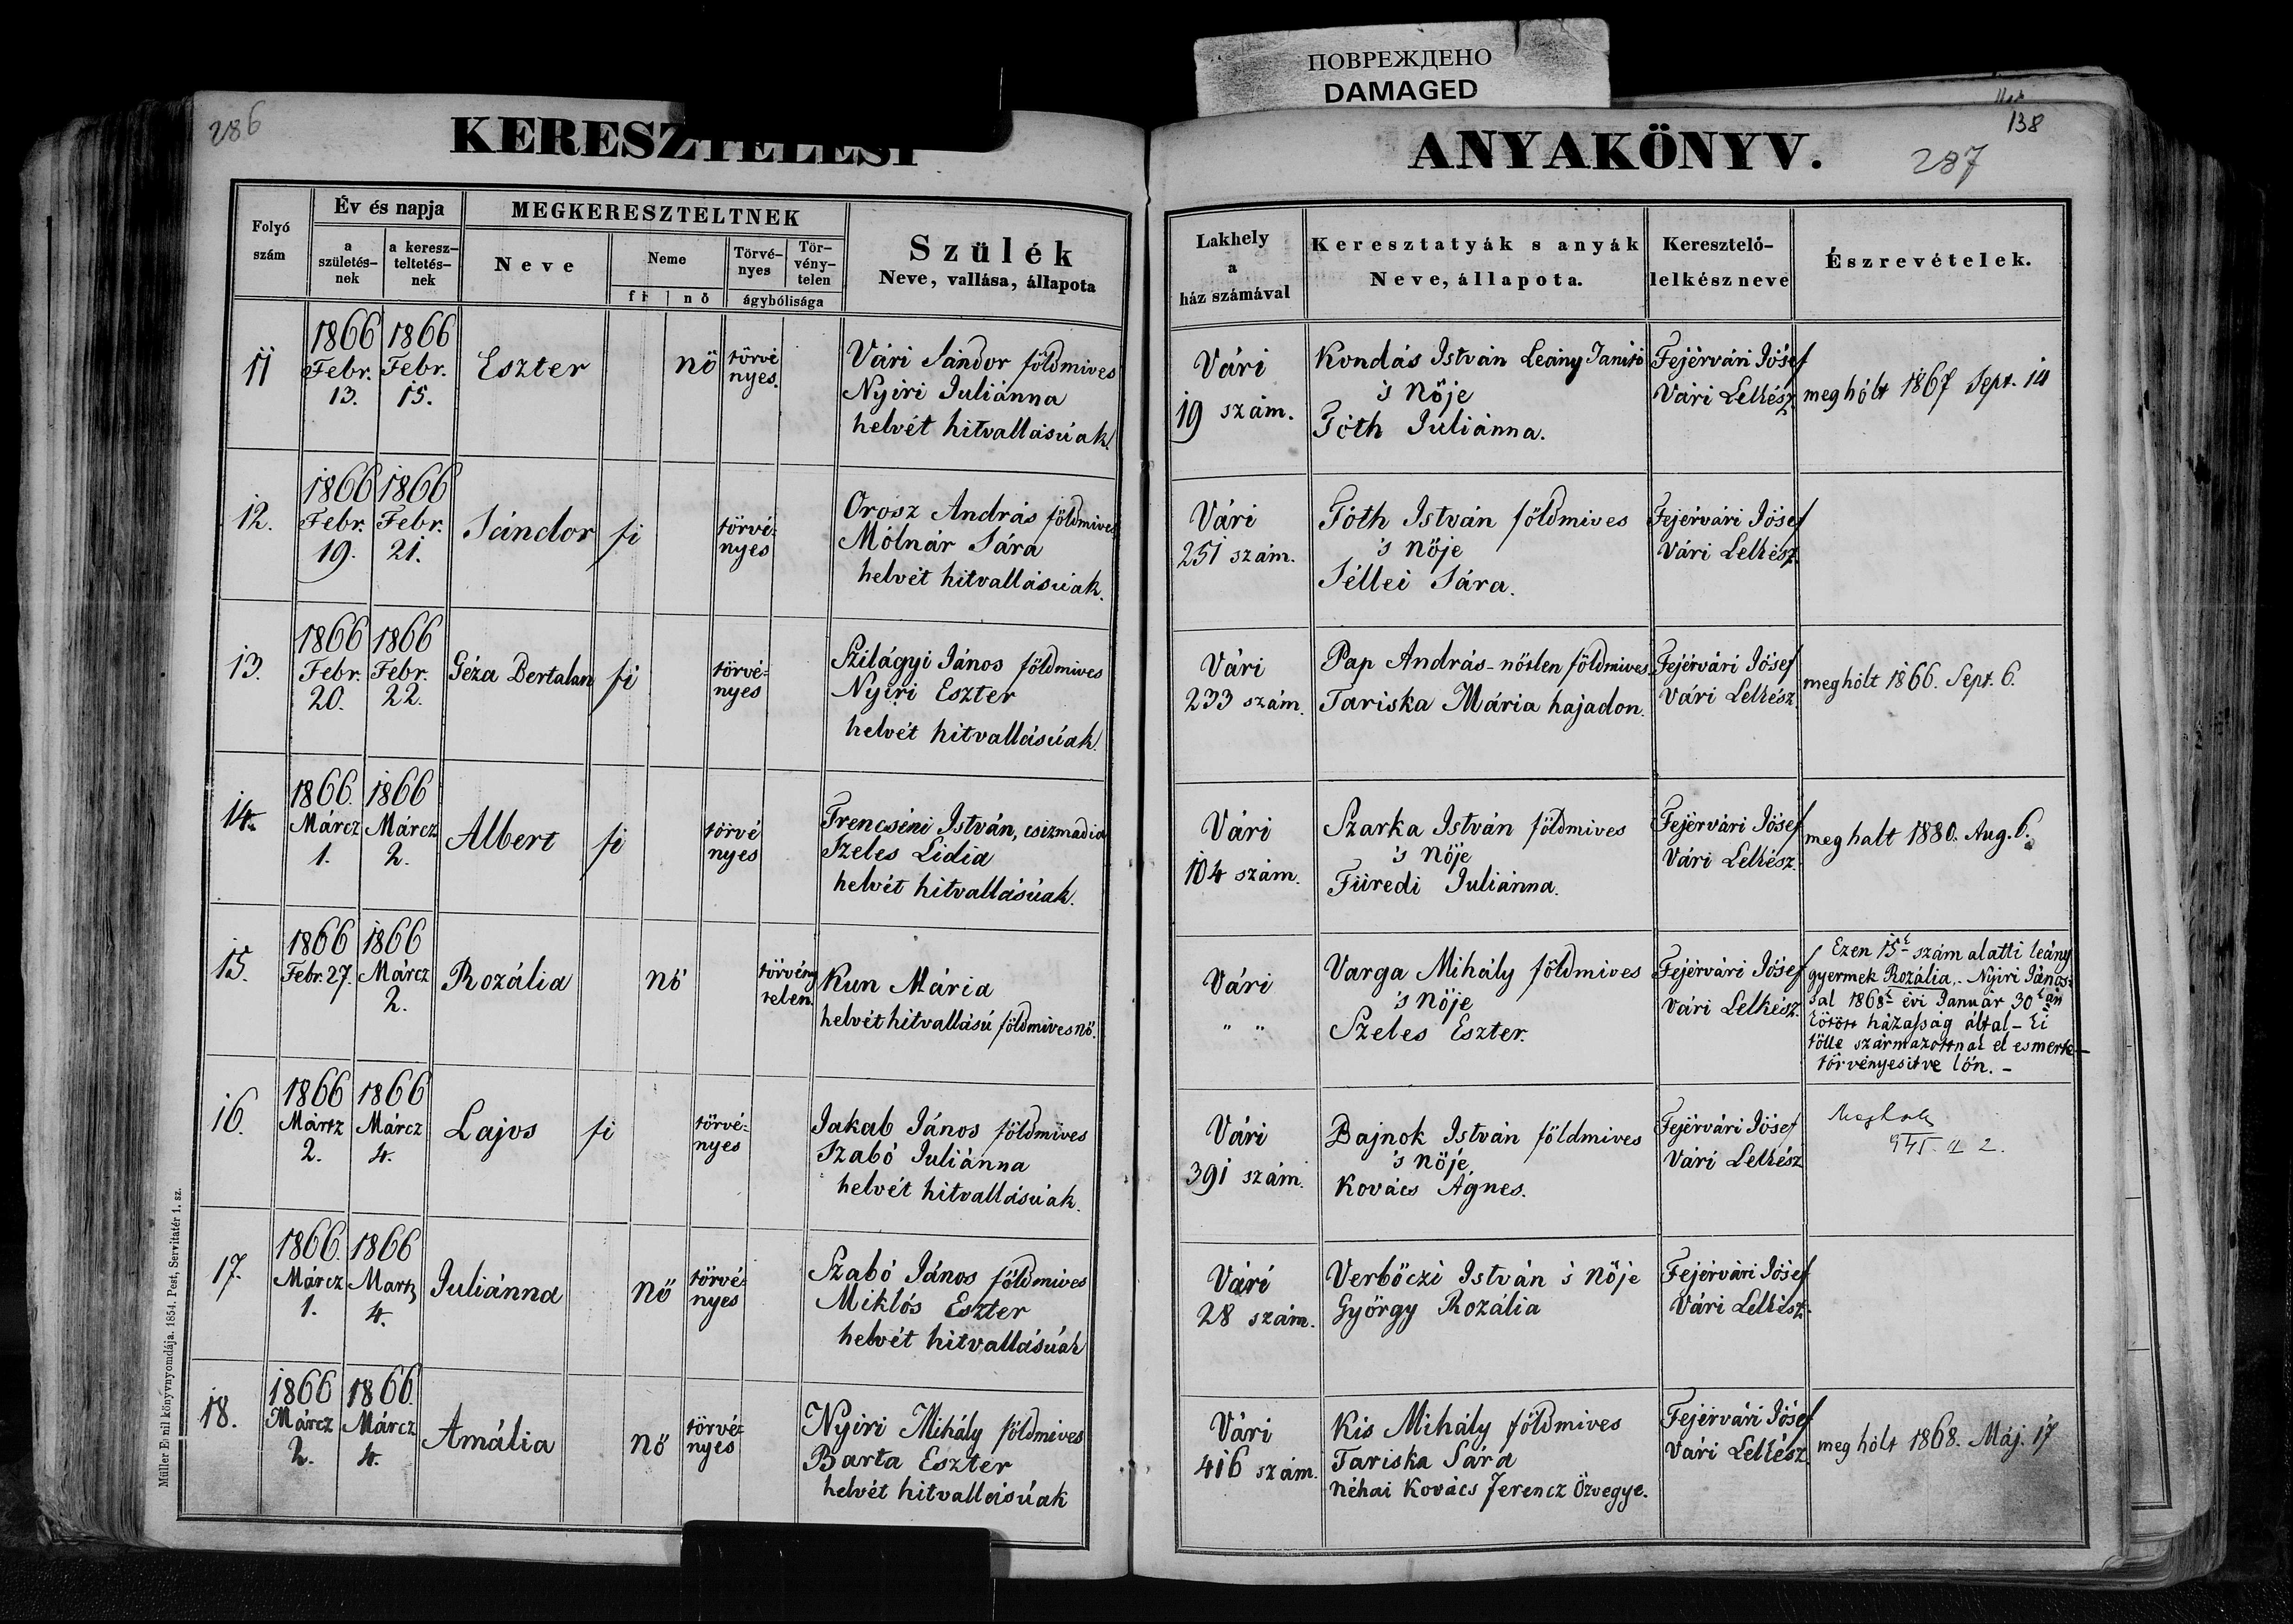 ПОВРЕЖДЕНО
DAMAGED
286
KERESZTELÉSI
ANYAKÖNYV.
138
287
Folyó szám
Év és napja
a születés-nek
a keresz-teltetés-nek
MEGKERESZTELTNEK
Neve
Neme
fi
nő
Törvé-nyes
Tör-vény-telen
ágybólisága
Szülék
Neve, vallása, állapota
Lakhely
a
ház számával
Keresztatyák s anyák
Neve, állapota.
Keresztelő-
lelkész neve
Észrevételek.
11
1866 Febr. 13.
1866 Febr. 15.
Eszter
nő
törvé
nyes.
Vári Sándor földmives
Nyiri Juliánna
helvét hitvallásúak.
Vári
19 szám.
Kondás István Leány Tanitó
's Nője
Tóth Juliánna.
Fejérvári Jósef
Vári Lelkész
meghólt 1867 Sept. 14
12.
1866 Febr. 19.
1866 Febr. 21.
Sándor
fi
törvé-
nyes
Orosz András földmives
Mólnár Sára
helvét hitvallásúak.
Vári
251 szám.
Tóth István földmives
's nője
Séllei Sára.
Fejérvári Jósef
Vári Lelkész.
13.
1866 Febr. 20.
1866 Febr. 22.
Géza Bertalan
fi
törvé-
nyes
Szilágyi János földmives
Nyiri Eszter
helvét hitvallásúak.
Vári
233 szám.
Pap András - nőtlen földmives
Tariska Mária hajadon.
Fejérvári Jósef
Vári Lelkész
meghólt 1866. Sept. 6.
14.
1866. Márcz 1.
1866 Márcz 2.
Albert
fi
törvé
nyes
Trencséni István, csizmadia
Szeles Lidia
helvét hitvallásúak.
Vári
104 szám.
Szarka István földmives
's Nője
Füredi Juliánna.
Fejérvári Jósef
Vári Lelkész.
meghalt 1880. Aug. 6.
15.
1866 Febr. 27.
1866 Márcz 2.
Rozália
nő
törvény
telen
Kun Mária
helvét hitvallású földmives nő.
Vári
" "
Varga Mihály földmives
's Nője
Szeles Eszter.
Fejérvári Jósef
Vári Lelkész.
Ezen 15k szám alatti leány
gyermek Rozália - Nyiri János-
sal 1868k évi Január 30kán
kötött házasság által - ki
tőlle származottnak el esmerte -
törvényesitve lőn. -
16.
1866 Mártz 2.
1866 Márcz 4.
Lajos
fi
törvé-
nyes
Jakab János földmives
Szabó Juliánna
helvét hitvallásúak.
Vári
391 szám.
Bajnok István földmives
's nője
Kovács Ágnes.
Fejérvári Jósef
Vári Lelkész
17.
1866. Márcz 1.
1866 Martz 4.
Juliánna
nő
törvé-
nyes
Szabó János földmives
Miklós Eszter
helvét hitvallásúak
Vári
28 szám.
Verbőczi István 's Nője
György Rozália
Fejérvári Jósef
Vári Lelkész.
18.
1866 Márcz 2.
1866. Márcz 4.
Amália
nő
törvé-
nyes
Nyiri Mihály földmives
Barta Eszter
helvét hitvallásúak
Vári
416 szám.
Kis Mihály földmives
Tariska Sára
néhai Kovács Ferencz Özvegye.
Fejérvári Jósef
Vári Lelkész
meghólt 1868. Máj. 17
Müller Emil könyvnyomdája. 1854. Pest, Servitatér 1. sz.